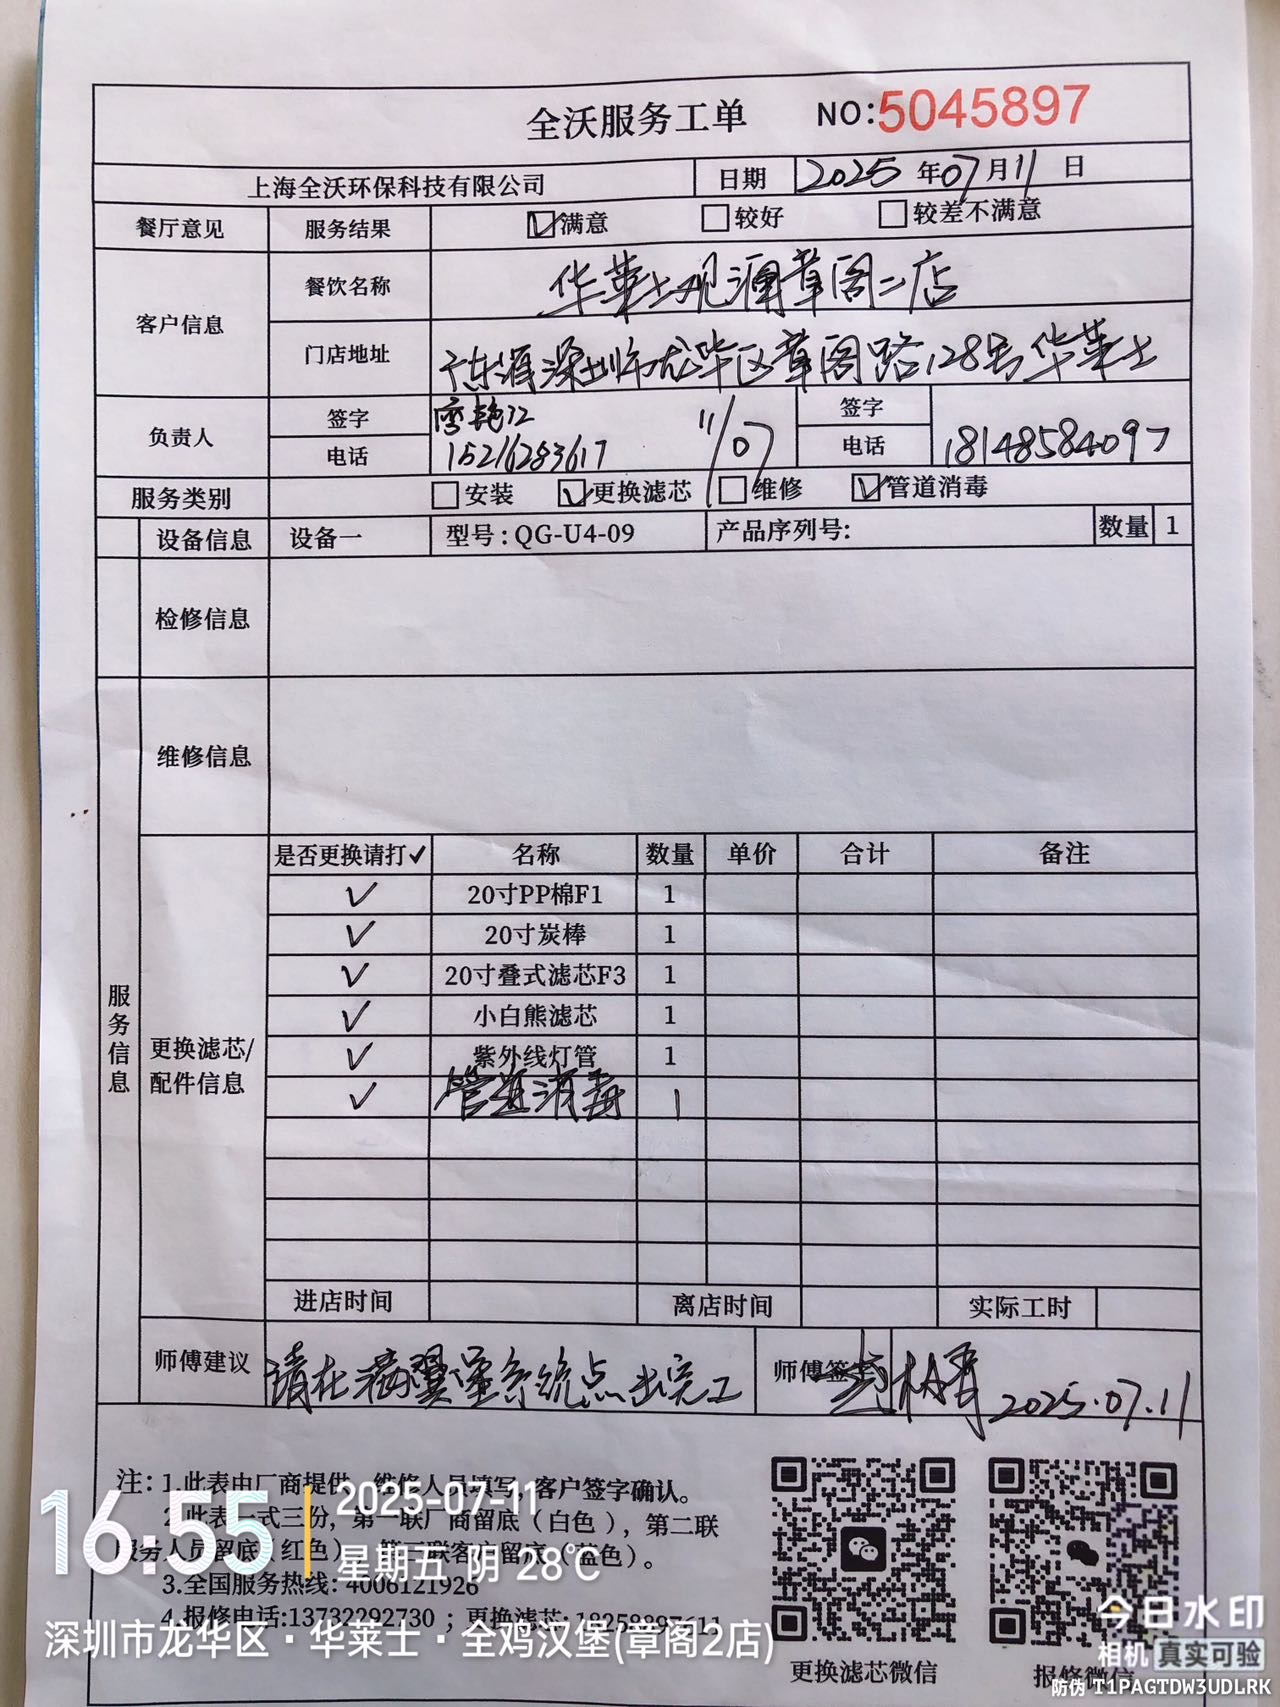 全沃服务工单 NO:5045897
上海全沃环保科技有限公司 日期 2025年07月11日
餐厅意见 服务结果 ☑满意 □较好 □较差不满意
客户信息 餐饮名称 华莱士观澜章阁二店
门店地址 广东省深圳市龙华区章阁路128号华莱士
负责人 签字 11/07 签字
电话 15216283617 电话 18148584097
服务类别 □安装 ☑更换滤芯 □维修 ☑管道消毒
设备信息 设备一 型号:QG-U4-09 产品序列号: 数量 1
检修信息
维修信息
服务信息
更换滤芯/
配件信息
是否更换请打✓ 名称 数量 单价 合计 备注
✓ 20寸PP棉F1 1
✓ 20寸炭棒 1
✓ 20寸叠式滤芯F3 1
✓ 小白熊滤芯 1
✓ 紫外线灯管 1
✓ 管道消毒 1
进店时间 离店时间 实际工时
师傅建议 请在 系统点出完工 师傅签字 2025.07.11
注: 1.此表由厂商提供,维修人员填写,客户签字确认。
2.此表一式三份,第一联厂商留底(白色),第二联
服务人员留底(红色),第三联客户留底(蓝色)。
3.全国服务热线: 4006121926
4.报修电话:13732292730 ; 更换滤芯:
更换滤芯微信 报修微信
16:55
2025-07-11
星期五 阴 28℃
深圳市龙华区·华莱士·全鸡汉堡(章阁2店)
今日水印
相机 真实可验
防伪 T1PAGTDW3UDLRK